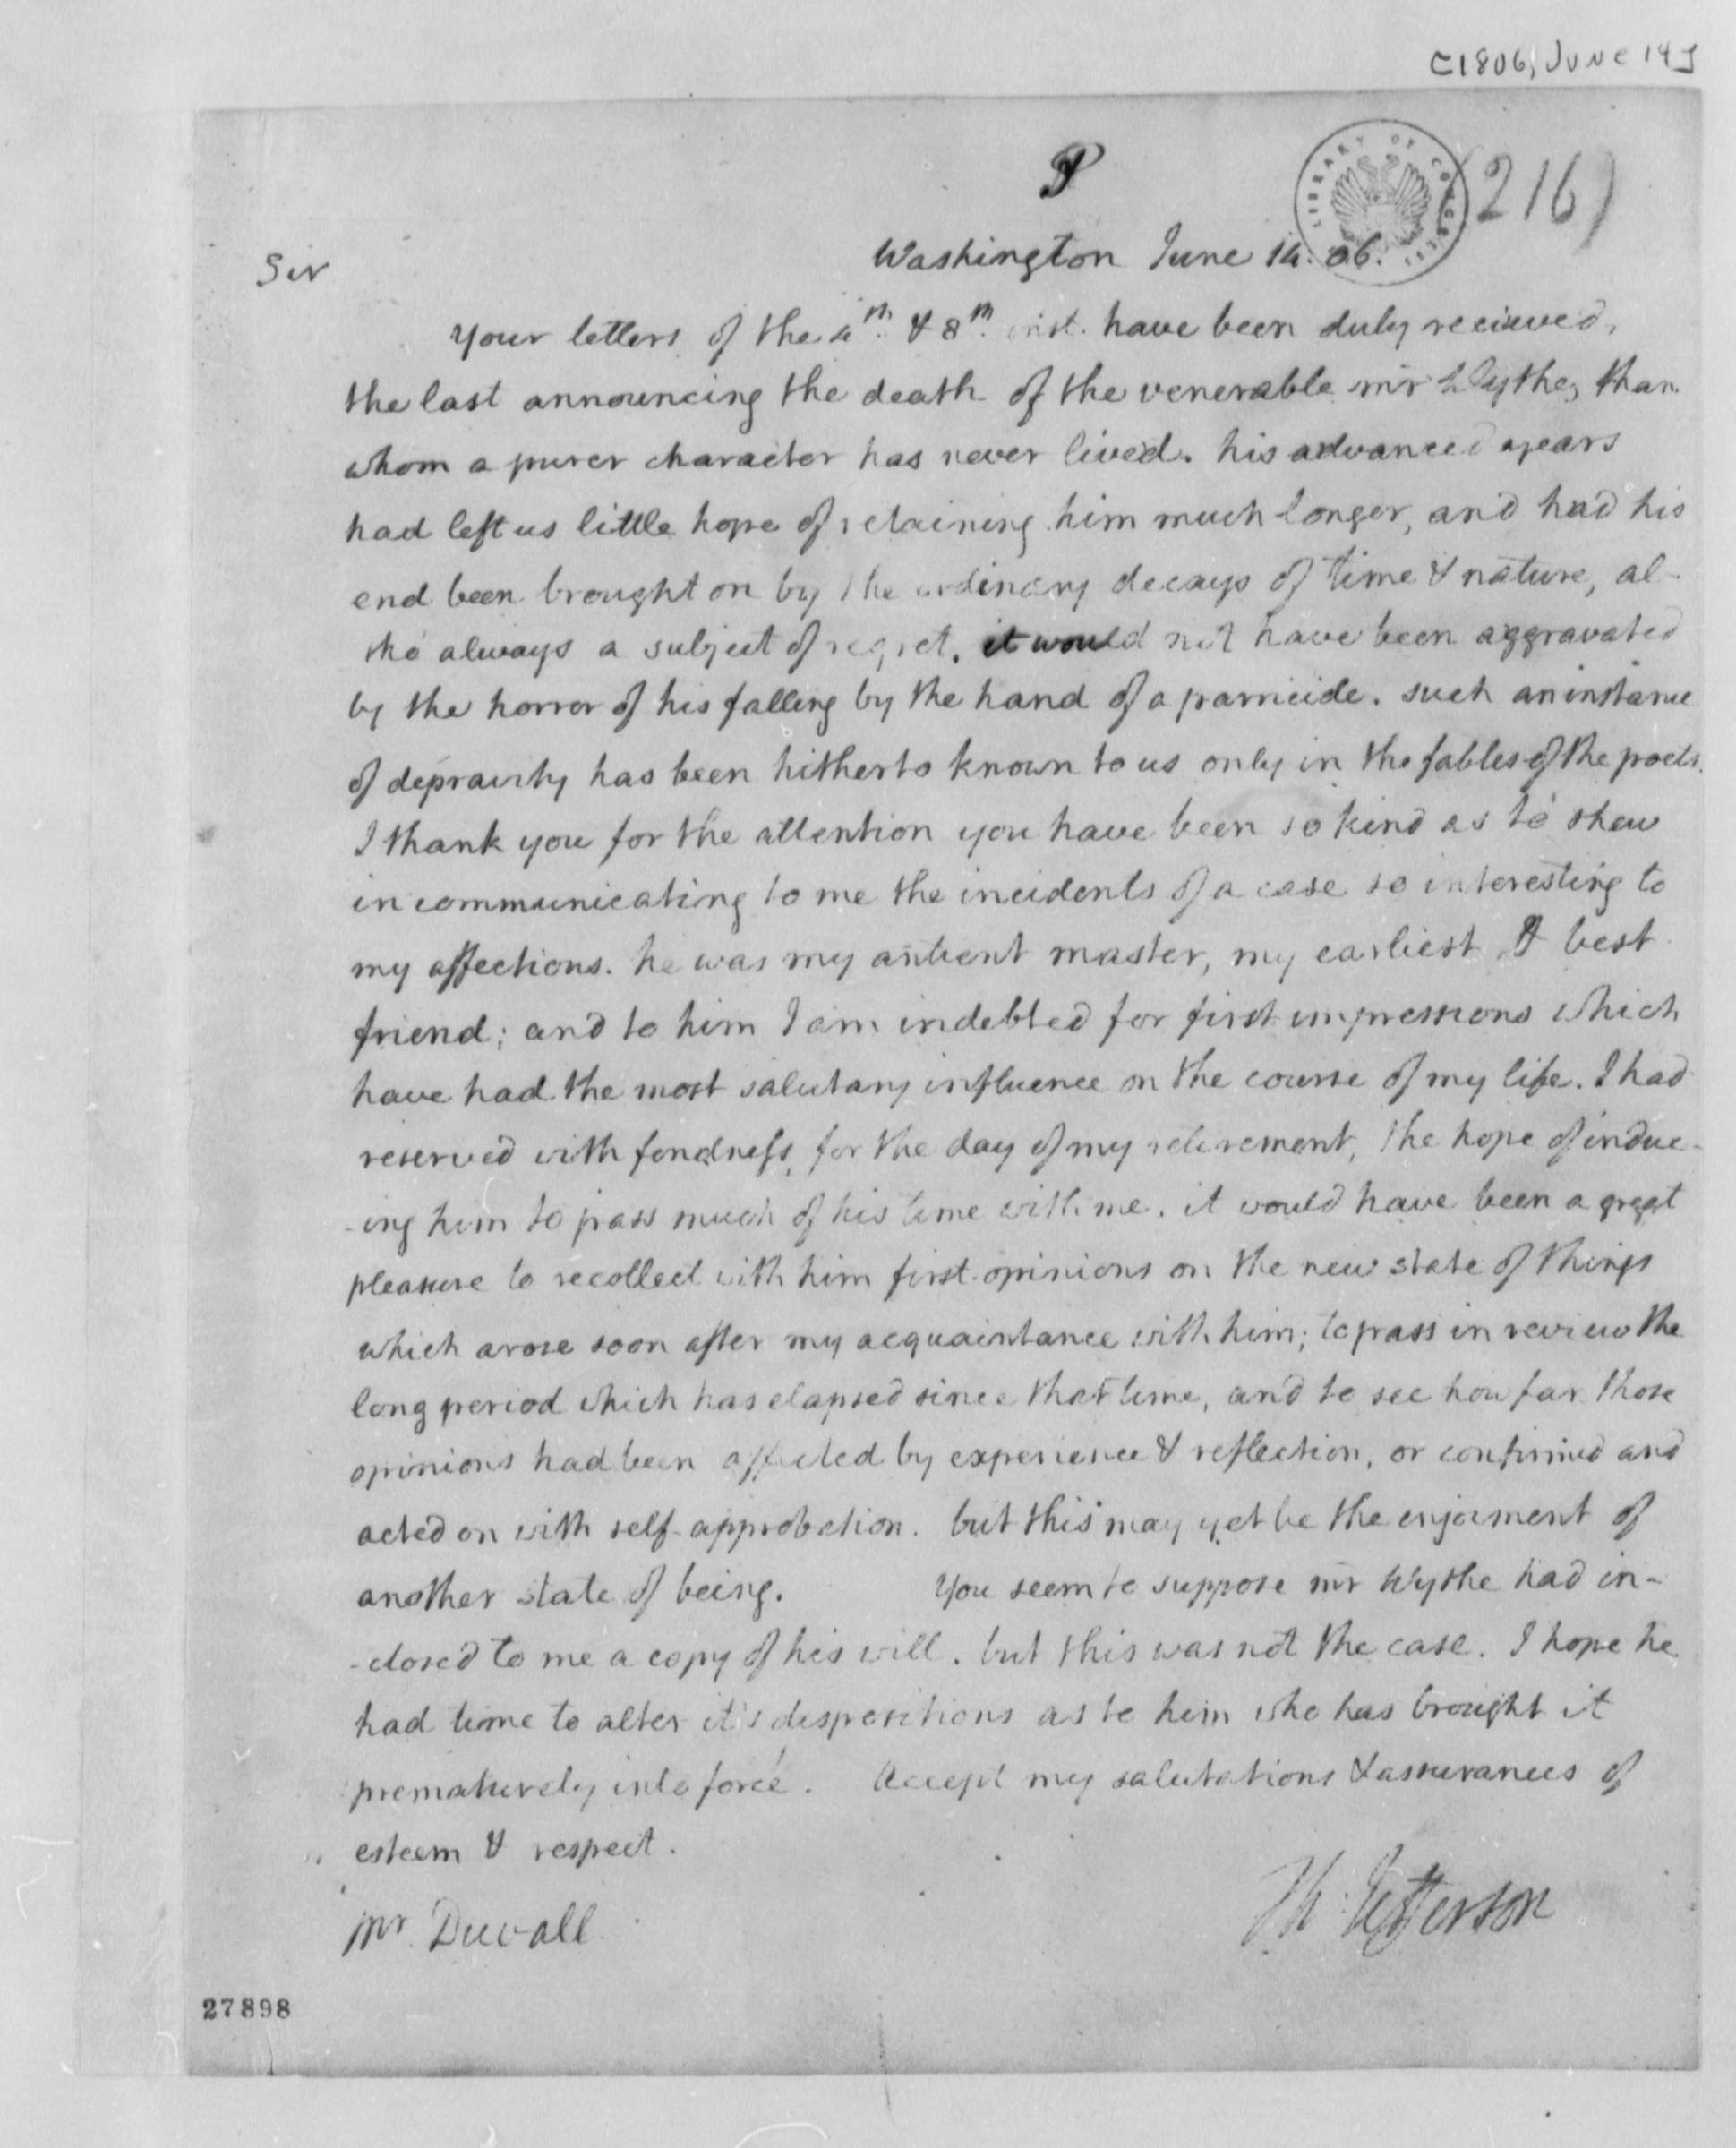 [1806, June 14]
(216)
LIBRARY OF CONGRESS
Washington June 14. 06.
Sir
Your letters of the 4th. & 8th. inst. have been duly recieved,
the last announcing the death of the venerable mr Wythe, than
whom a purer character has never lived. his advanced years
had left us little hope of retaining him much longer, and had his
end been brought on by the ordinary decays of time & nature, al-
tho' always a subject of regret, it would not have been aggravated
by the horror of his falling by the hand of a parricide. such an instance
of depravity has been hitherto known to us only in the fables of the poets.
I thank you for the attention you have been so kind as to shew
in communicating to me the incidents of a case so interesting to
my affections. he was my antient master, my earliest & best
friend; and to him I am indebted for first impressions which
have had the most salutary influence on the course of my life. I had
reserved with fondness, for the day of my retirement, the hope of induc-
-ing him to pass much of his time with me. it would have been a great
pleasure to recollect with him first opinions on the new state of things
which arose soon after my acquaintance with him; to pass in review the
long period which has elapsed since that time, and to see how far those
opinions had been affected by experience & reflection, or confirmed and
acted on with self-approbation. but this may yet be the enjoiment of
another state of being. You seem to suppose mr Wythe had in-
-closed to me a copy of his will. but this was not the case. I hope he
had time to alter it's dispositions as to him who has brought it
prematurely into force. Accept my salutations & assurances of
esteem & respect.
Th: Jefferson
Mr. Duvall
27898